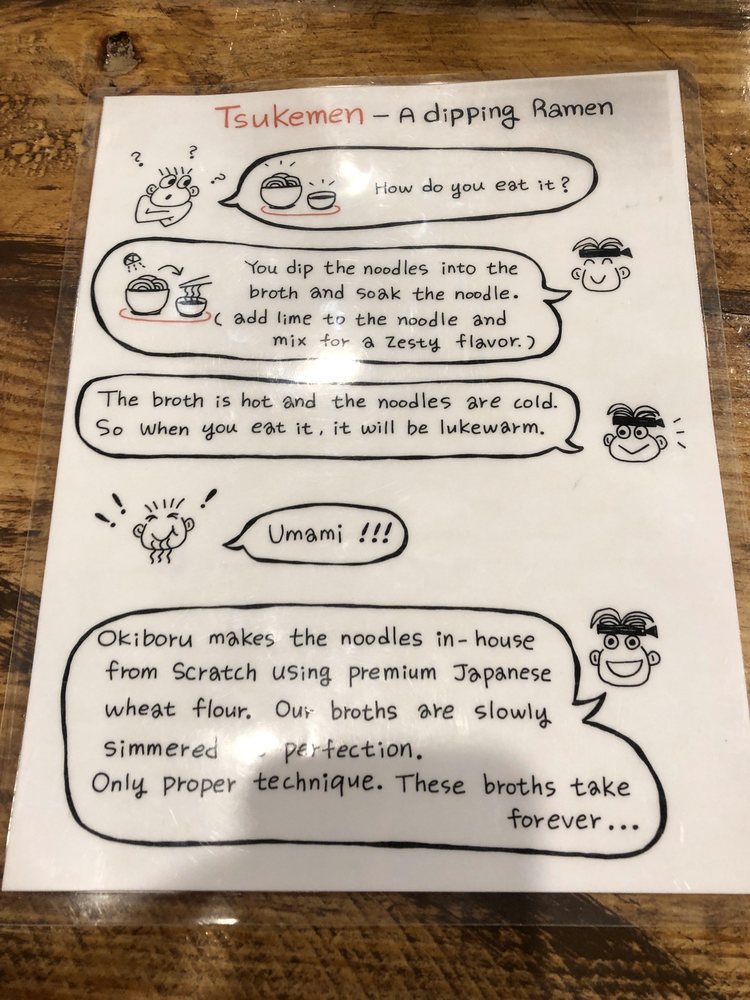 Tsukemen – A dipping Ramen
? ? ?
How do you eat it?
You dip the noodles into the
broth and soak the noodle.
( add lime to the noodle and
mix for a zesty flavor.)
The broth is hot and the noodles are cold.
So when you eat it, it will be lukewarm.
!! !
Umami !!!
Okiboru makes the noodles in-house
from scratch using premium Japanese
wheat flour. Our broths are slowly
simmered perfection.
Only proper technique. These broths take
forever...